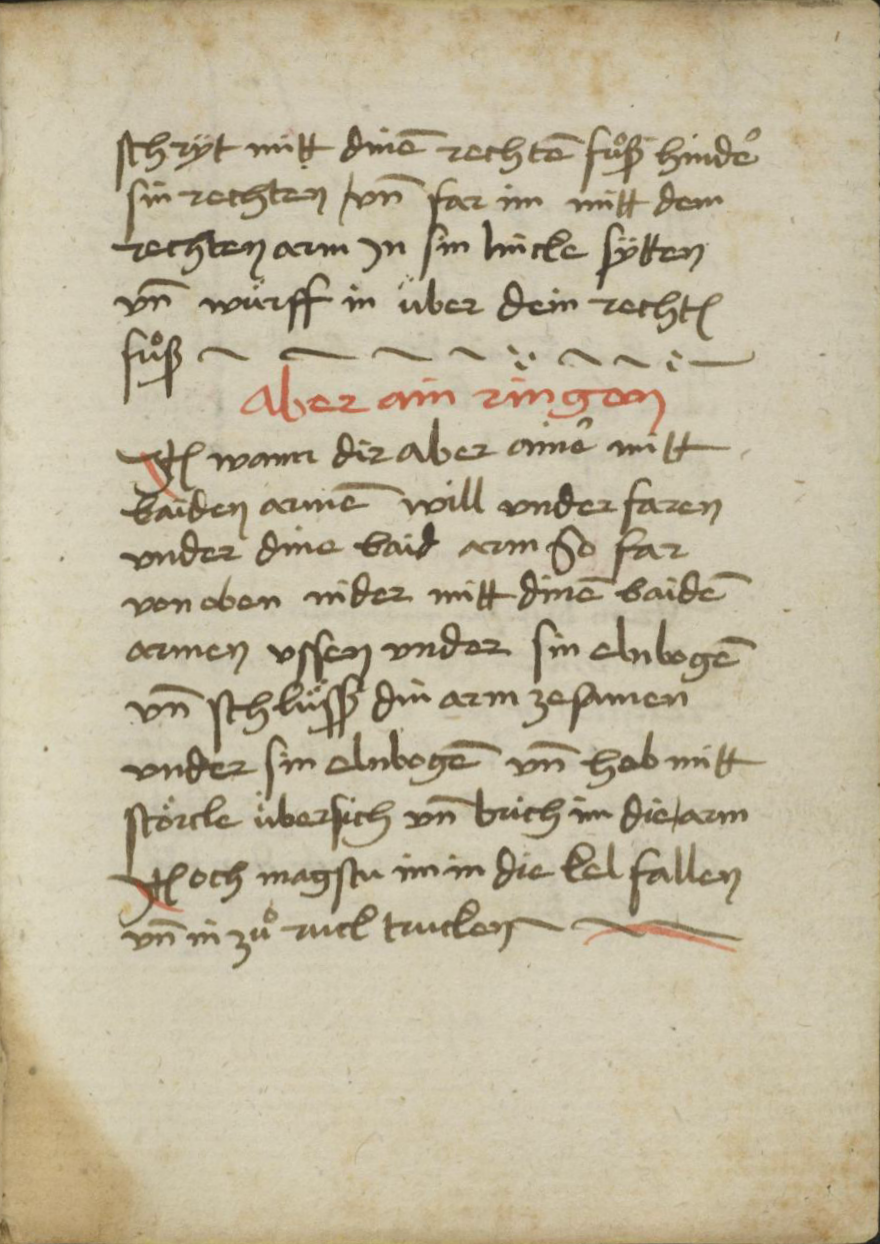 schrÿt mitt dinē rechtē fuͦß hindeˀ
sin rechten / vn̄ far im mitt dem
rechten arm Jn sin lincke sÿtten
vn̄ würff in über dein rechtꝭ
fuͦß
Aber ain ringen
Itꝭ wann dir aber aineˀ mitt
baiden armē will vnder faren
vnder dine baid arm So far
von oben nider mitt dinē baidē
armen vssen vnder sin elnbogē
vn̄ schlüß din arm zesamen
vnder sin elnbogē vn̄ heb mitt
störcke übersich vn̄ brich im die arm
Itꝭ och magstu im in die kel fallen
vn̄ in zuͦ ruck trucken